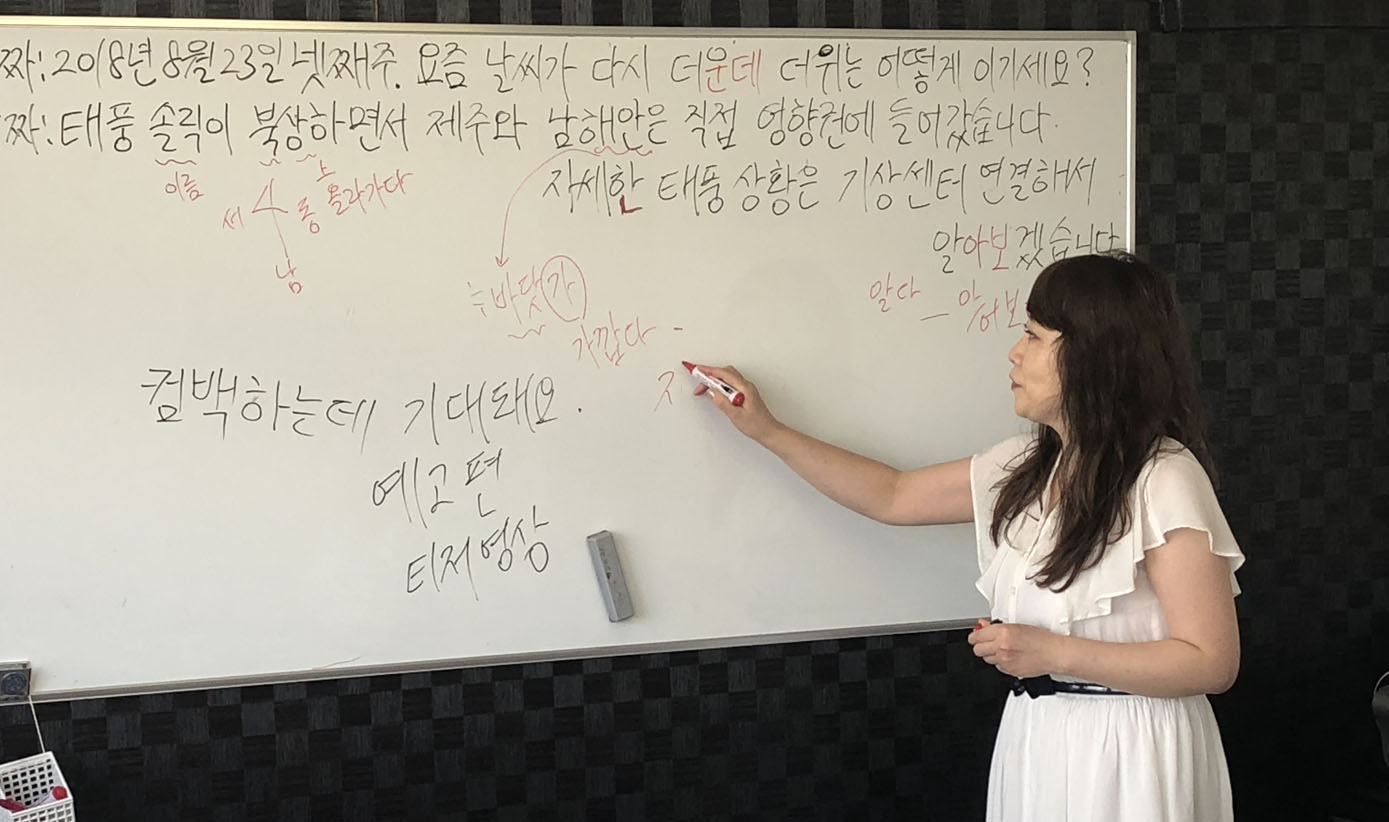 짜: 2018년 8월 23일 넷째주. 요즘 날씨가 다시 더운데 더위는 어떻게 이기세요?
짜: 태풍 솔릭이 북상하면서 제주와 남해안은 직접 영향권에 들어갔습니다.
이름
上
올라가다
서 동
남
자세한 태풍 상황은 기상센터 연결해서
알아보겠습니다
바닷가
가깝다 -
알다 —
컴백하는데 기대돼요.
예고편
티저영상